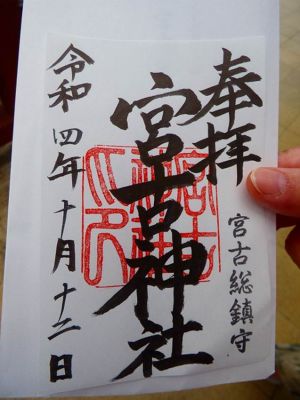 奉拝
宮古総鎮守
宮古神社
令和四年十月十二日